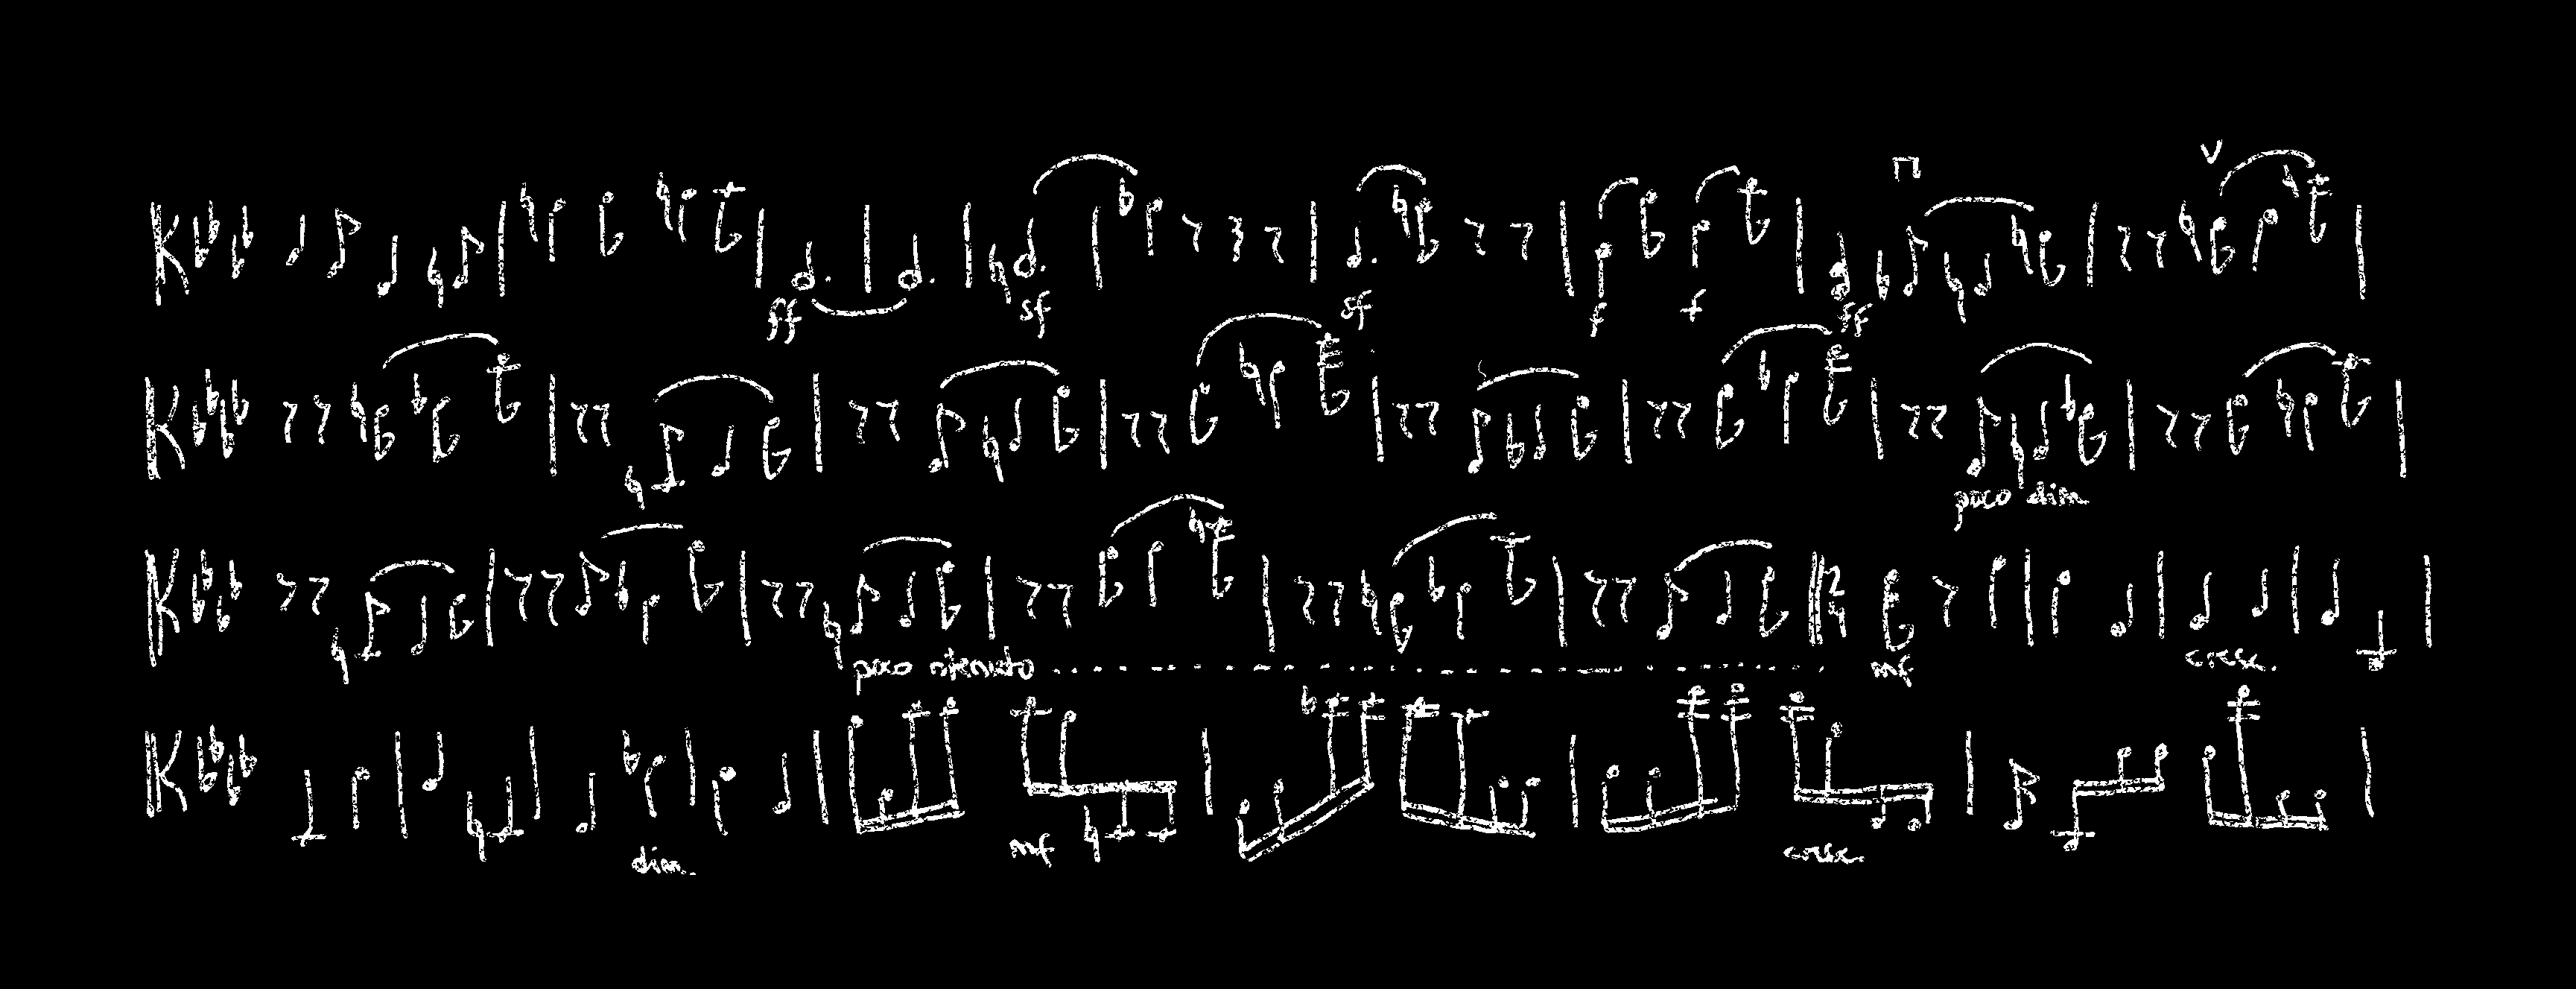 ff sf sf f f ff
poco dim
poco ritenuto 2 4 mf cresc.
dim. mf cresc.